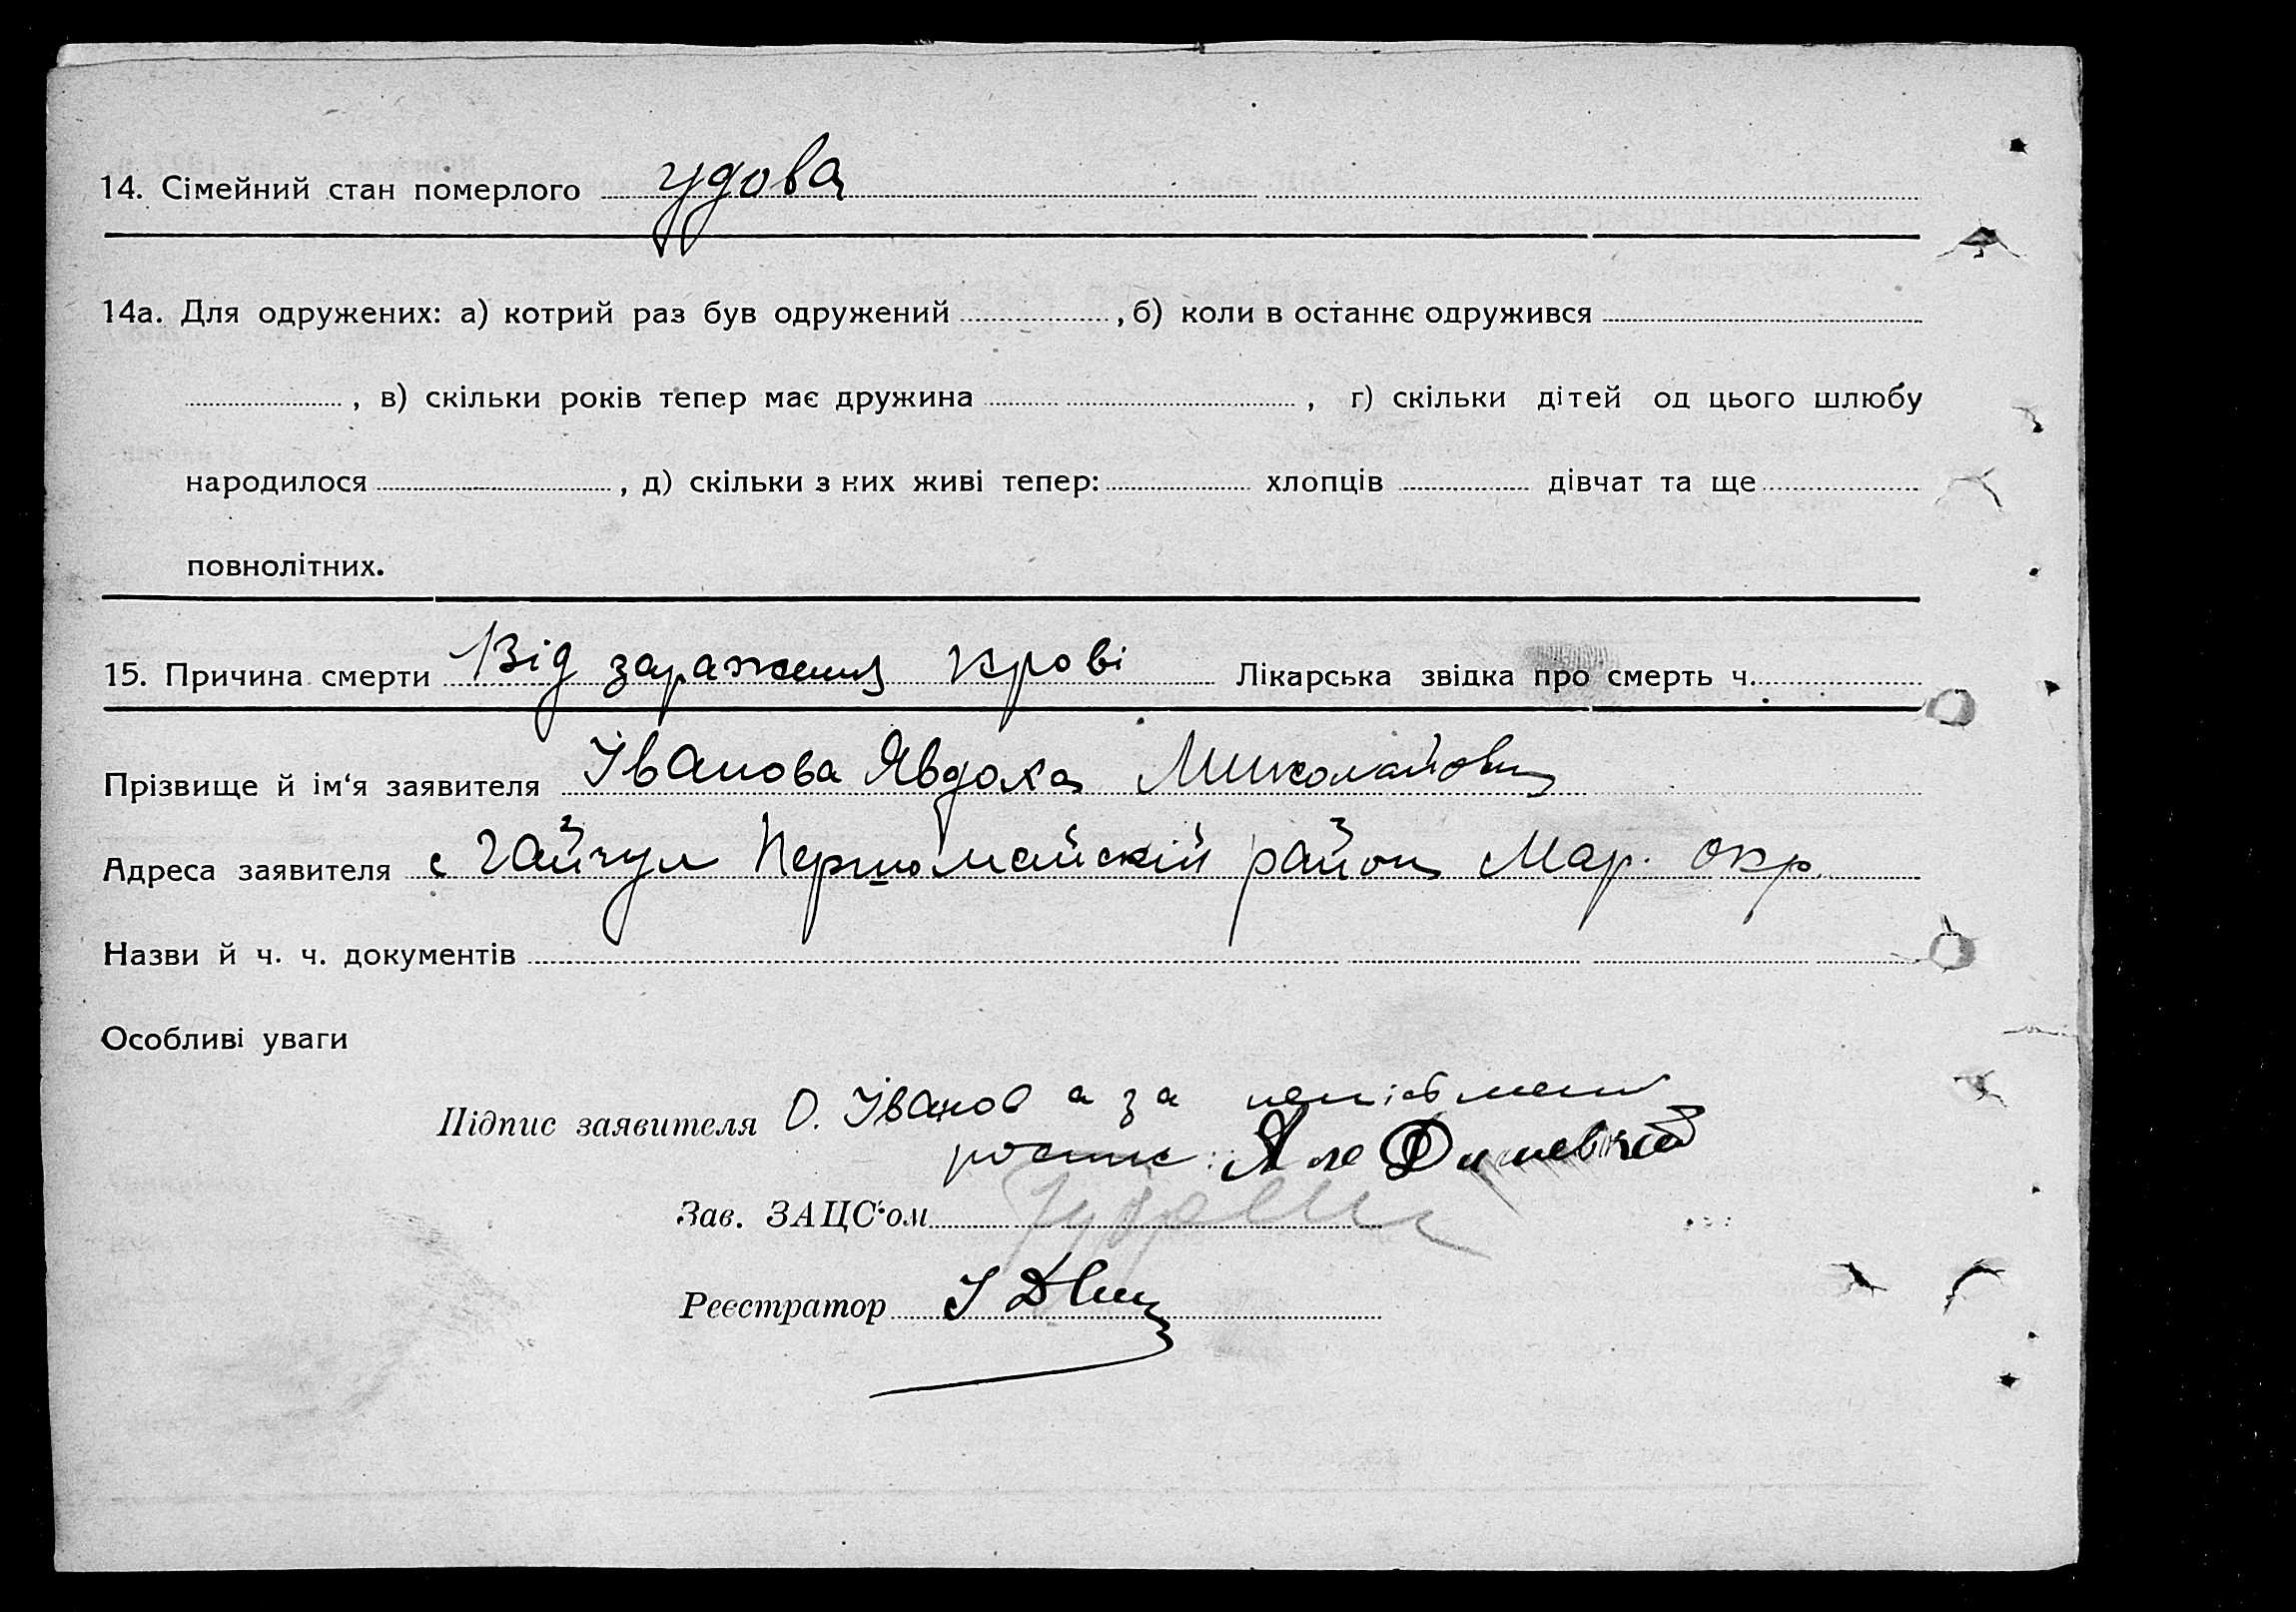 14. Сімейний стан померлого удова
14а. Для одружених: а) котрий раз був одружений , б) коли в останнє одружився
, в) скільки років тепер має дружина , г) скільки дітей од цього шлюбу
народилося , д) скільки з них живі тепер: хлопців дівчат та ще
повнолітних.
15. Причина смерти Від зараження крові Лікарська звідка про смерть ч.
Прізвище й ім'я заявителя Іванова Явдоха
Адреса заявителя с Гайчул Першомайскій район Мар. окр.
Назви й ч. ч. документів
Особливі уваги
Підпис заявителя О. Іванов а за
роспис:
Зав. ЗАЦС'ом
Реєстратор